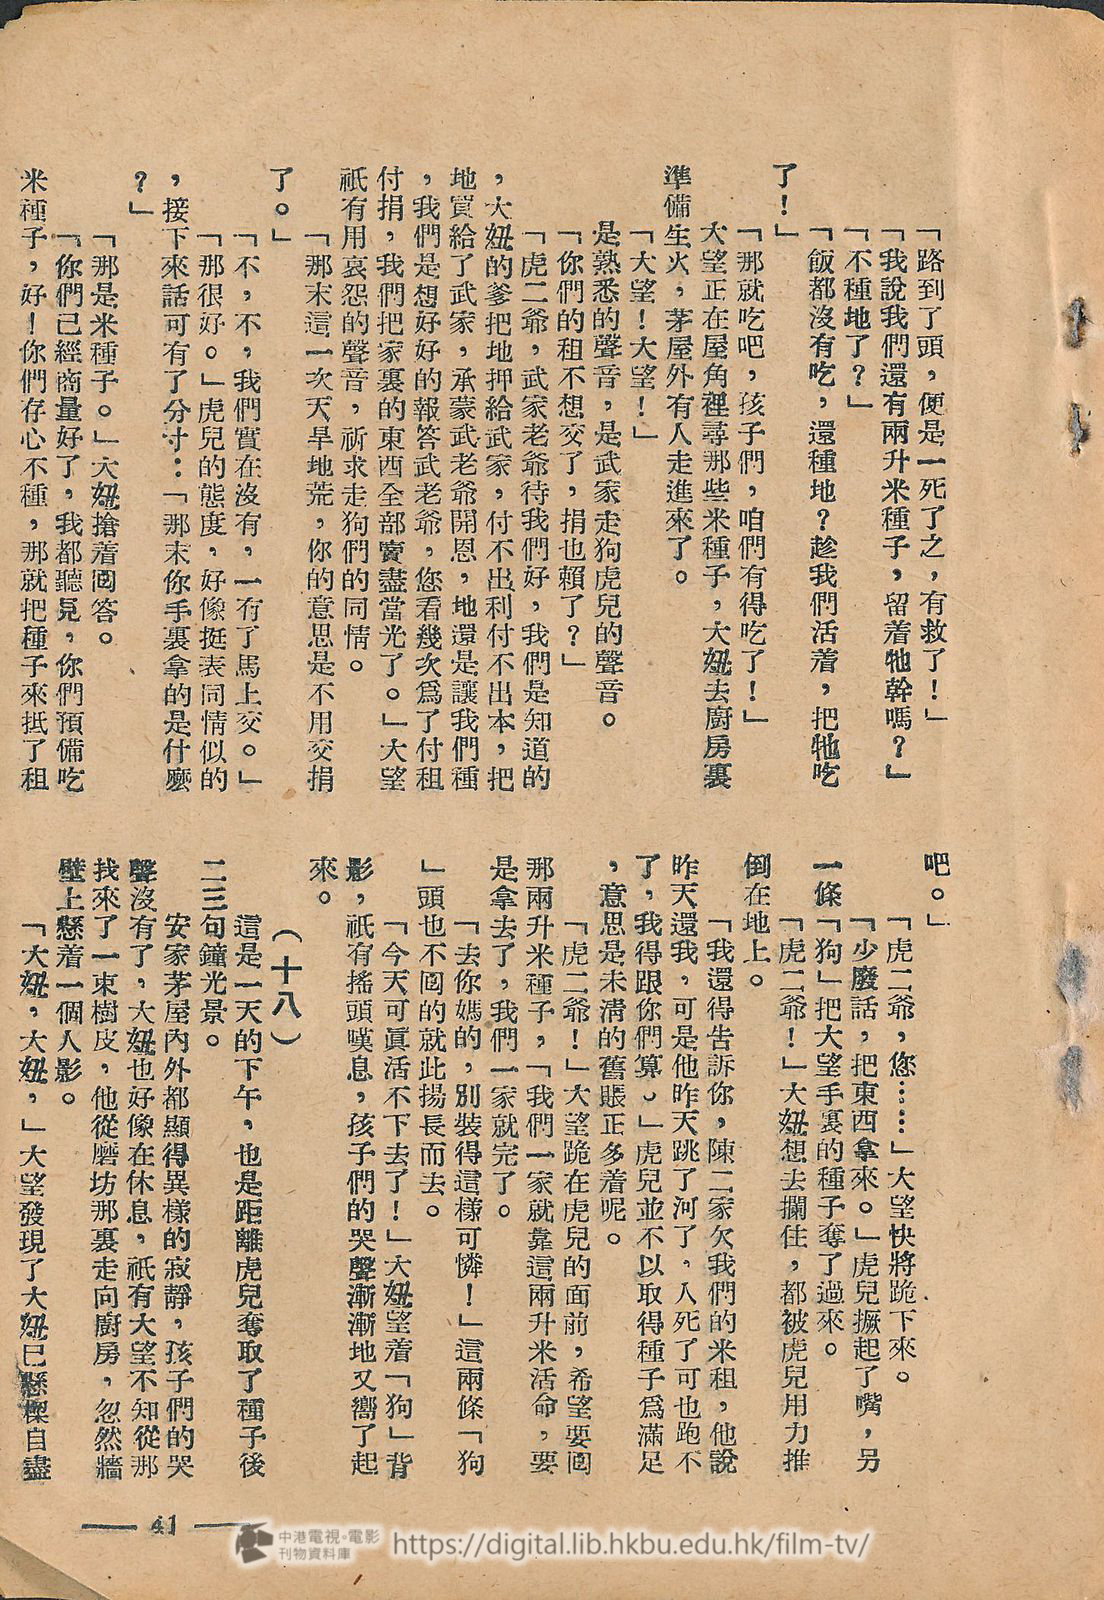 「路到了頭，便是一死了之，有救了！」
「我說我們還有兩升米種子，留着牠幹嗎？」
「不種地了？」
「飯都沒有吃，還種地？趁我們活着，把牠吃
了！」
「那就吃吧，孩子們，咱們有得吃了！」
大望正在屋角裡尋那些米種子，大妞去廚房裏
準備生火，茅屋外有人走進來了。
「大望！大望！」
是熟悉的聲音，是武家走狗虎兒的聲音。
「你們的租不想交了，捐也賴了？」
「虎二爺，武家老爺待我們好，我們是知道的
，大妞的爹把地押給武家，付不出利付不出本，把
地買給了武家，承蒙武老爺開恩，地還是讓我們種
，我們是想好好的報答武老爺，您看幾次爲了付租
付捐，我們把家裏的東西全部賣盡當光了。」大望
祇有用哀怨的聲音，祈求走狗們的同情。
「那末這一次天旱地荒，你的意思是不用交捐
了。」
「不，不，我們實在沒有，一有了馬上交。」
「那很好。」虎兒的態度，好像挺表同情似的
，接下來話可有了分寸：「那末你手裏拿的是什麼
？」
「那是米種子。」大妞搶着囘答。
「你們已經商量好了，我都聽見，你們預備吃
米種子，好！你們存心不種，那就把種子來抵了租
吧。」
「虎二爺，您……」大望快將跪下來。
「少廢話，把東西拿來。」虎兒撅起了嘴，另
一條「狗」把大望手裏的種子奪了過來。
「虎二爺！」大妞想去攔住，都被虎兒用力推
倒在地上。
「我還得告訴你，陳二家欠我們的米租，他說
昨天還我，可是他昨天跳了河了，人死了可也跑不
了，我得跟你們算。」虎兒並不以取得種子爲滿足
，意思是未清的舊賬正多着呢。
「虎二爺！」大望跪在虎兒的面前，希望要囘
那兩升米種子，「我們一家就靠這兩升米活命，要
是拿去了，我們一家就完了。
「去你媽的，別裝得這樣可憐！」這兩條「狗
」頭也不囘的就此揚長而去。
「今天可眞活不下去了！」大妞望着「狗」背
影，祇有搖頭嘆息，孩子們的哭聲漸漸地又嚮了起
來。
（十八）
這是一天的下午，也是距離虎兒奪取了種子後
二三句鐘光景。
安家茅屋內外都顯得異樣的寂靜，孩子們的哭
聲沒有了，大妞也好像在休息，祇有大望不知從那
找來了一束樹皮，他從磨坊那裏走向廚房，忽然牆
壁上懸着一個人影。
「大妞，大妞，」大望發現了大妞已懸樑自盡
— 41 —
中港電視·電影
刊物資料庫
https://digital.lib.hkbu.edu.hk/film-tv/